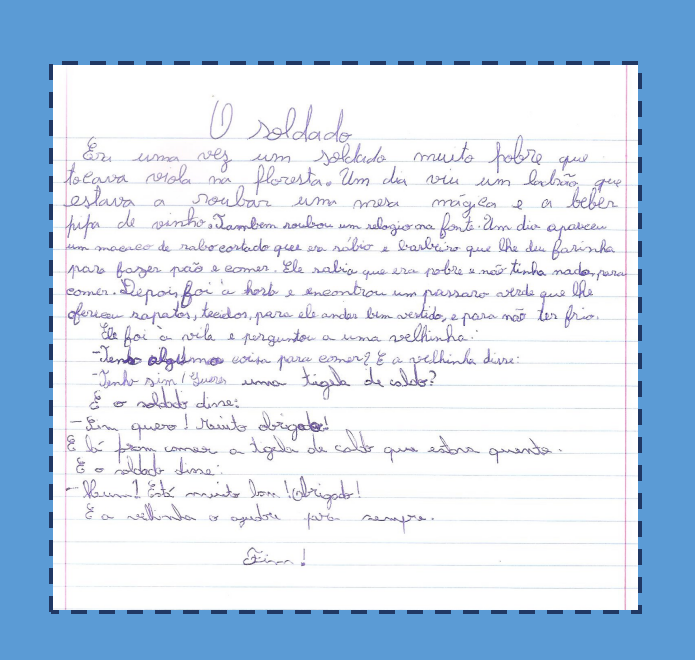 O soldado
Era uma vez um soldado muito pobre que
tocava viola na floresta. Um dia viu um ladrão que
estava a roubar uma mesa mágica e a beber
pipa de vinho. Também roubou um relogio na fonte. Um dia apareceu
um macaco de rabo cortado que era sábio e barbeiro que lhe deu farinha
para fazer pão e comer. Ele sabia que era pobre e não tinha nada para
comer. Depois foi à horta e encontrou um passaro verde que lhe
ofereceu sapatos, tecidos, para ele andar bem vestido, e para não ter frio.
Ele foi à vila e perguntou a uma velhinha:
- Tens alguma coisa para comer? E a velhinha disse:
- Tenho sim! Queres uma tigela de caldo?
E o soldado disse:
- Sim quero! Muito obrigado!
E lá foram comer a tigela de caldo que estava quente.
E o soldado disse:
- Hum! Está muito bom! Obrigado!
E a velhinha o ajudou para sempre.
Fim!